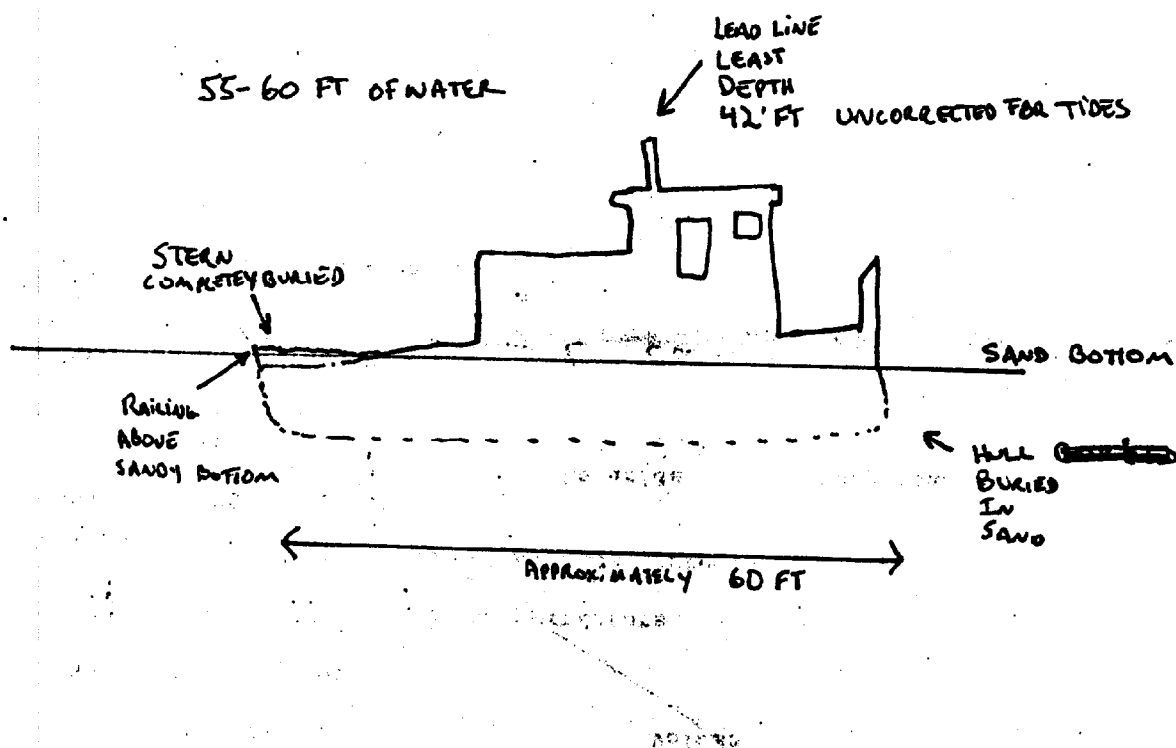 55-60 FT OF WATER
LEAD LINE
LEAST
DEPTH
42' FT UNCORRECTED FOR TIDES
STERN
COMPLETEY BURIED
RAILING
ABOVE
SANDY BOTTOM
SAND BOTTOM
HULL
BURIED
IN
SAND
APPROXIMATELY 60 FT